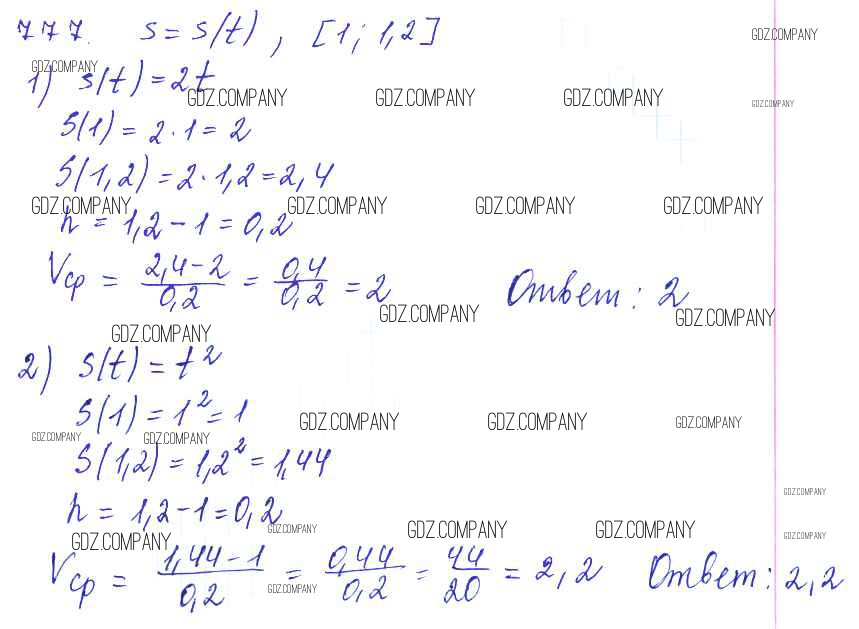 777. s = s(t), [1; 1,2]
GDZ.COMPANY
GDZ.COMPANY
1) s(t) = 2t
GDZ.COMPANY GDZ.COMPANY GDZ.COMPANY GDZ.COMPANY
S(1) = 2 · 1 = 2
S(1,2) = 2 · 1,2 = 2,4
GDZ.COMPANY GDZ.COMPANY GDZ.COMPANY GDZ.COMPANY
h = 1,2 - 1 = 0,2
Vср = (2,4 - 2)/0,2 = 0,4/0,2 = 2 Ответ: 2
GDZ.COMPANY GDZ.COMPANY
GDZ.COMPANY
2) s(t) = t²
S(1) = 1² = 1
GDZ.COMPANY GDZ.COMPANY GDZ.COMPANY
GDZ.COMPANY GDZ.COMPANY
S(1,2) = 1,2² = 1,44
GDZ.COMPANY
h = 1,2 - 1 = 0,2
GDZ.COMPANY GDZ.COMPANY GDZ.COMPANY GDZ.COMPANY GDZ.COMPANY
Vср = (1,44 - 1)/0,2 = 0,44/0,2 = 44/20 = 2,2 Ответ: 2,2
GDZ.COMPANY